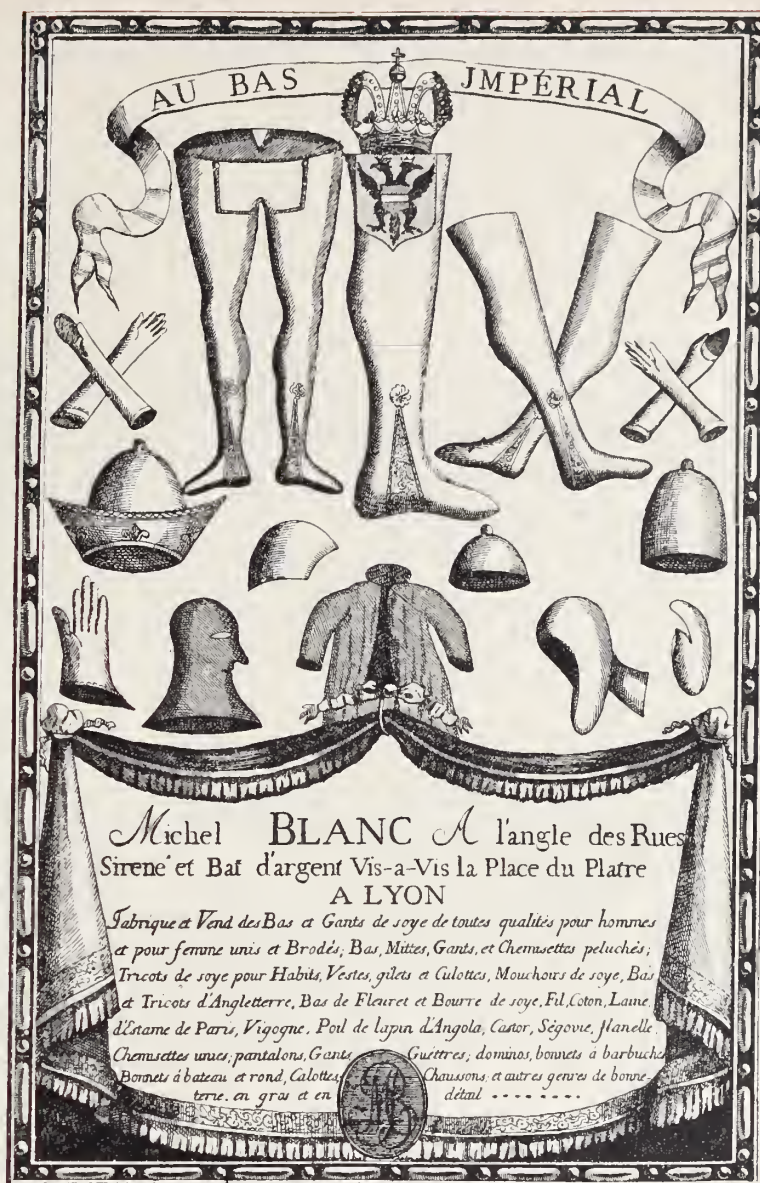 AU BAS JMPÉRIAL
Michel BLANC A l'angle des Rues
Sirene et Bat d'argent Vis-a-Vis la Place du Platre
A LYON
Fabrique et Vend des Bas et Gants de soye de toutes qualités pour hommes
et pour femme unis et Brodés; Bas, Mittes, Gants, et Chemisettes peluchés;
Tricots de soye pour Habits, Vestes, gilets et Culottes, Mouchoirs de soye, Bas
et Tricots d'Angletterre, Bas de Fleuret et Bourre de soye, Fil, Coton, Laine,
d'Estame de Paris, Vigogne, Poil de lapin d'Angola, Castor, Ségovie, flanelle.
Chemisettes unies; pantalons, Gants Guêttres; dominos, bonnets à barbuche
Bonnets à bateau et rond, Calottes, Chaussons; et autres genres de bonne-
terie. en gros et en détail ........